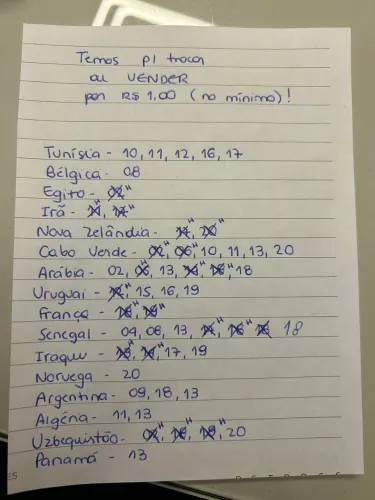 Temos p/ trocar
ou VENDER
por R$ 1,00 (no mínimo)!
Tunísia - 10, 11, 12, 16, 17
Bélgica - 08
Egito -
Irã -
Nova Zelândia -
Cabo Verde - 10, 11, 13, 20
Arábia - 02, 13, 18
Uruguai - 15, 16, 19
França -
Senegal - 04, 08, 13, 18
Iraque - 17, 19
Noruega - 20
Argentina - 09, 18, 13
Algéria - 11, 13
Uzbequistão - 20
Panamá - 13